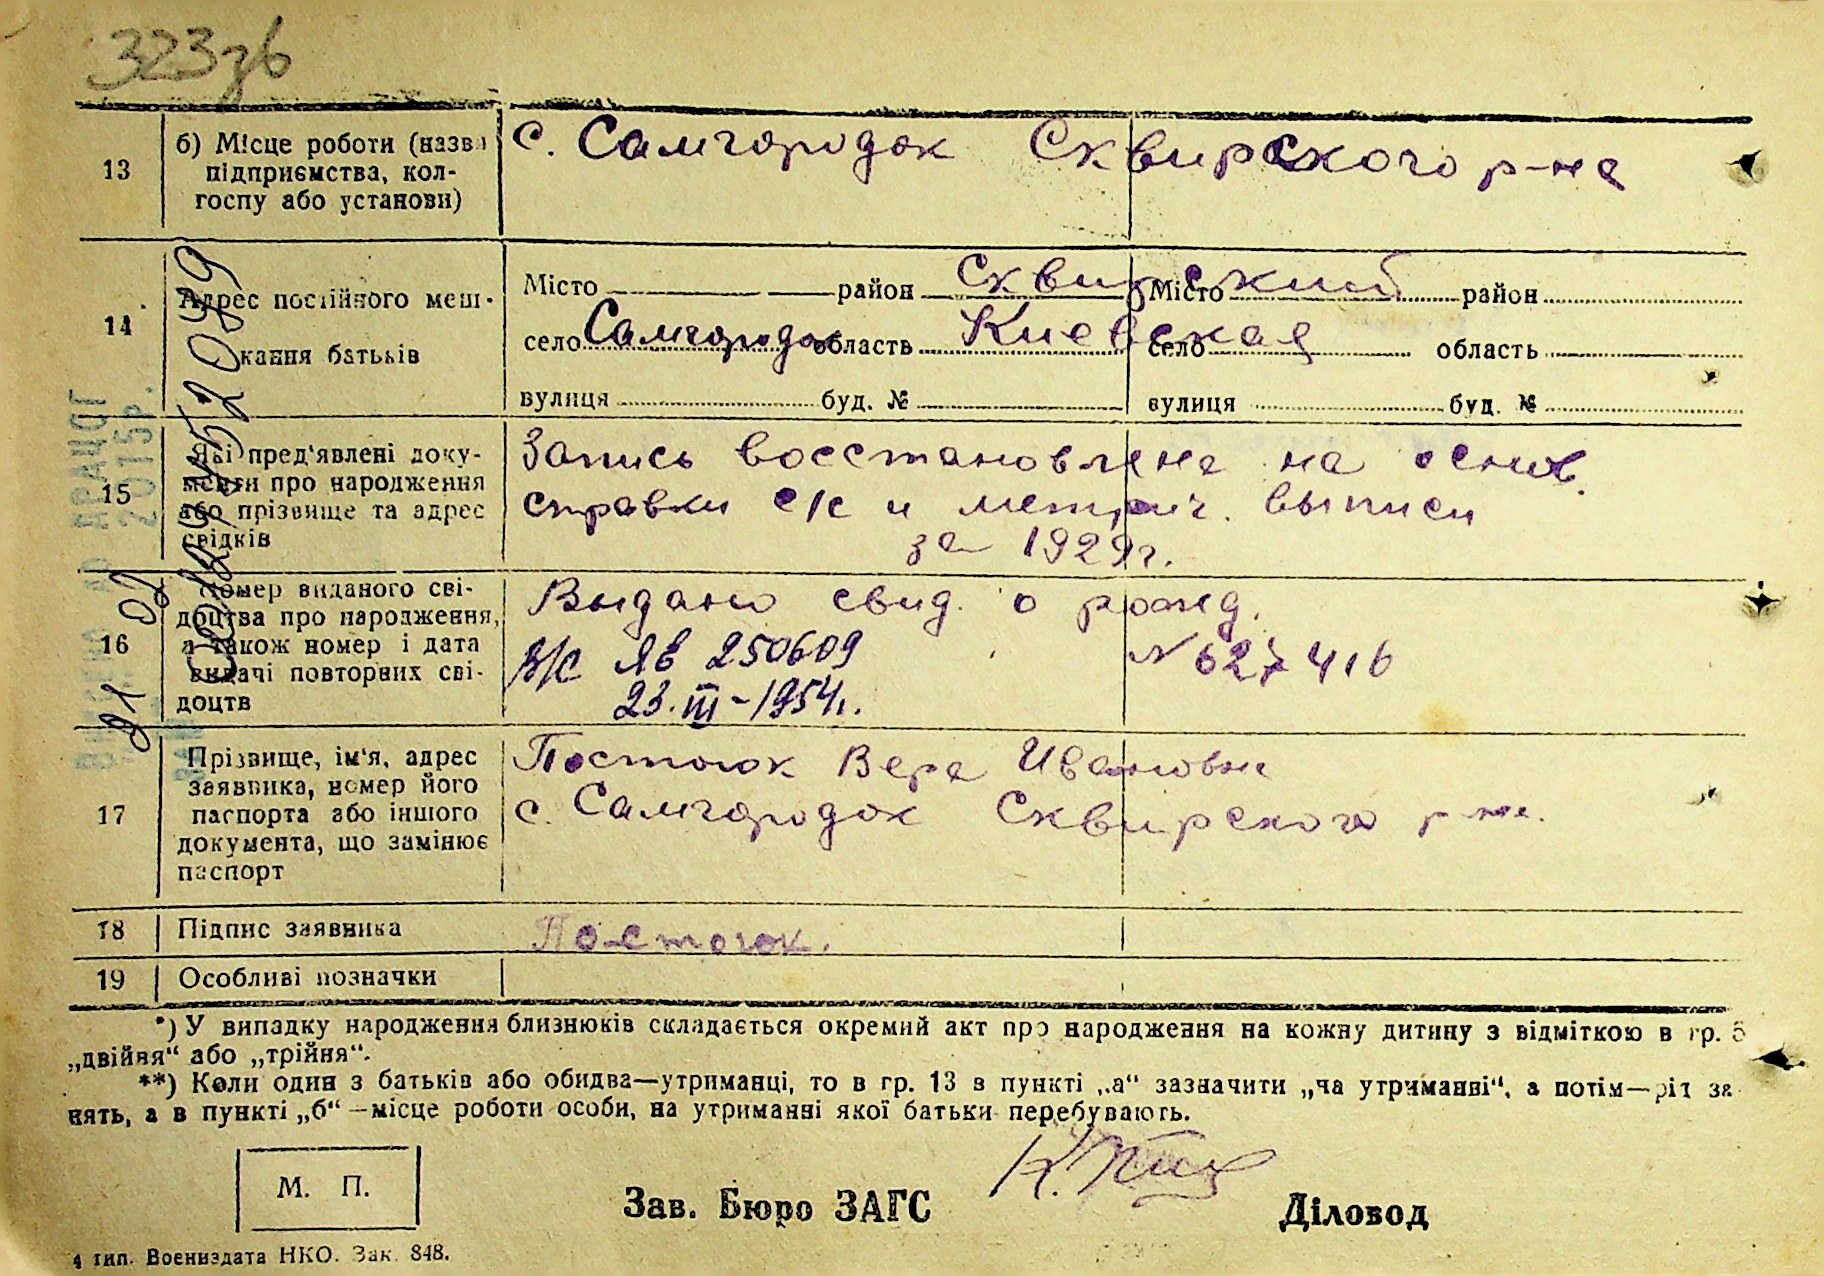 323зв
13
б) Місце роботи (назва
підприємства, кол-
госпу або установи)
с. Самгородок Сквирского р-на
14
Адрес постійного меш-
кання батьків
Місто район Сквирский
село Самгородок область Киевская
вулиця буд. №
Місто район
село область
вулиця буд. №
15
Які пред'явлені доку-
менти про народження
або прізвище та адрес
свідків
Запись восстановлена на основ.
справки с/с и метрич. выписи
за 1929г.
16
Номер виданого сві-
доцтва про народження,
а також номер і дата
видачі повторних сві-
доцтв
Выдано свид. о рожд.
№ 627416
в/с ЯВ 250609
23.III-1954г.
17
Прізвище, ім'я, адрес
заявника, номер його
паспорта або іншого
документа, що замінює
паспорт
Постоюк Вера Ивановна
с. Самгородок Сквирского р-на.
18
Підпис заявника
Постоюк.
19
Особливі позначки
*) У випадку народження близнюків складається окремий акт про народження на кожну дитину з відміткою в гр. 5
„двійня“ або „трійня“.
**) Коли один з батьків або обидва—утриманці, то в гр. 13 в пункті „а“ зазначити „на утриманні“, а потім—рід за-
нять, а в пункті „б“ —місце роботи особи, на утриманні якої батьки перебувають.
М. П.
Зав. Бюро ЗАГС
Діловод
4 тип. Воениздата НКО. Зак. 848.
2015р.